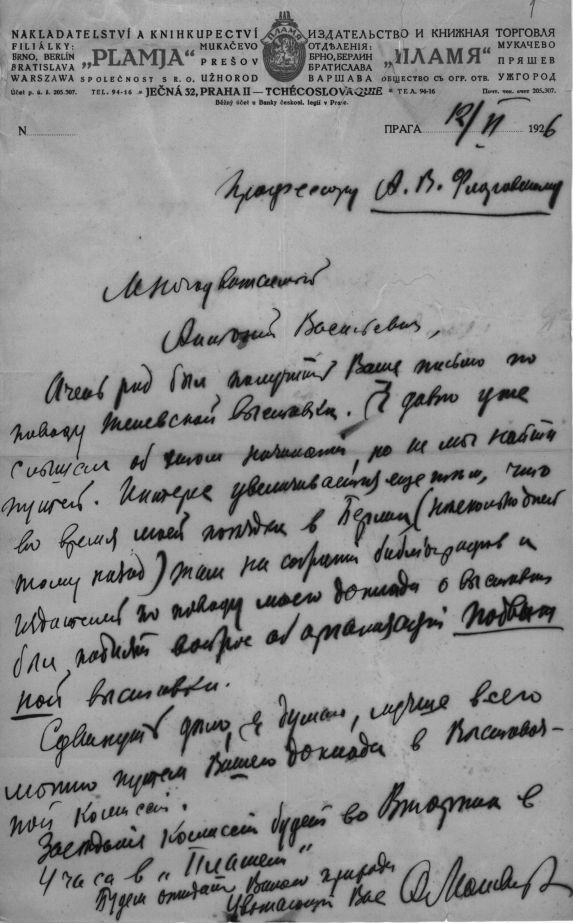 NAKLADATELSTVÍ A KNIHKUPECTVÍ
FILIÁLKY:
BRNO, BERLÍN
BRATISLAVA
WARSZAWA
„PLAMJA"
SPOLEČNOST S R. O.
MUKAČEVO
PREŠOV
UŽHOROD
Účet p. ú. š. 205.307.
TEL. 94-16
ПЛАМЯ
ИЗДАТЕЛЬСТВО И КНИЖНАЯ ТОРГОВЛЯ
ОТДѢЛЕНІЯ:
БРНО, БЕРЛИН
БРАТИСЛАВА
ВАРШАВА
„ПЛАМЯ"
ОБЩЕСТВО СЪ ОГР. ОТВ.
МУКАЧЕВО
ПРЯШЕВ
УЖГОРОД
JEČNÁ 32, PRAHA II — TCHÉCOSLOVAQUIE
ТЕЛ. 94-16
Почт. чек. счет 205.307.
Běžný účet u Banky českosl. legií v Praze.
N
ПРАГА 12/II 1926
Профессору А. В. Флоровскому
Многоуважаемый
Антоний Васильевич,
Очень рад был получить Ваше письмо по
поводу выставки. Я давно уже
слышал об этом начинании, но не мог найти
путей. Интерес увеличивается еще тем, что
во время моей поездки в Берлин (несколько дней
тому назад) там на собрании библиографов и
издателей по поводу моего доклада о выставке
был поднят вопрос об организации
ной выставки.
Сдвинуть дело, я думаю, лучше всего
можно путем Вашего доклада в Выставоч-
ной Комиссии.
Заседание Комиссии будет во Вторник в
4 часа в „Пламени"
Будем ожидать Вашего прихода
Уважающий Вас